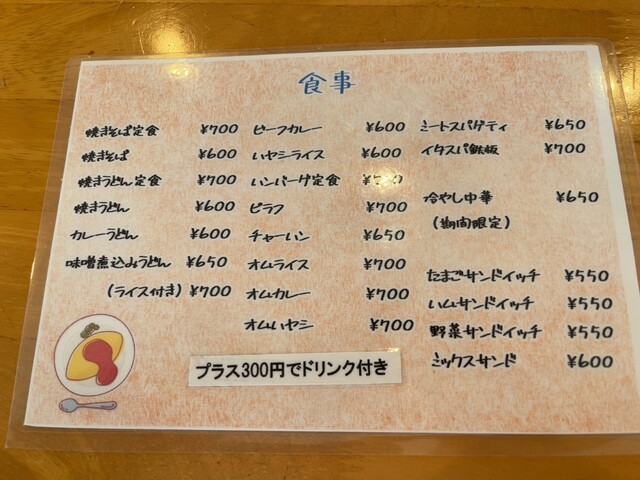 食事
焼きそば定食 ¥700
焼きそば ¥600
焼きうどん定食 ¥700
焼きうどん ¥600
カレーうどん ¥600
味噌煮込みうどん ¥650
(ライス付き) ¥700
ビーフカレー ¥600
ハヤシライス ¥600
ハンバーグ定食
ピラフ ¥700
チャーハン ¥650
オムライス ¥700
オムカレー ¥700
オムハヤシ ¥700
ミートスパゲティ ¥650
イタスパ鉄板 ¥700
冷やし中華 ¥650
(期間限定)
たまごサンドイッチ ¥550
ハムサンドイッチ ¥550
野菜サンドイッチ ¥550
ミックスサンド ¥600
プラス300円でドリンク付き